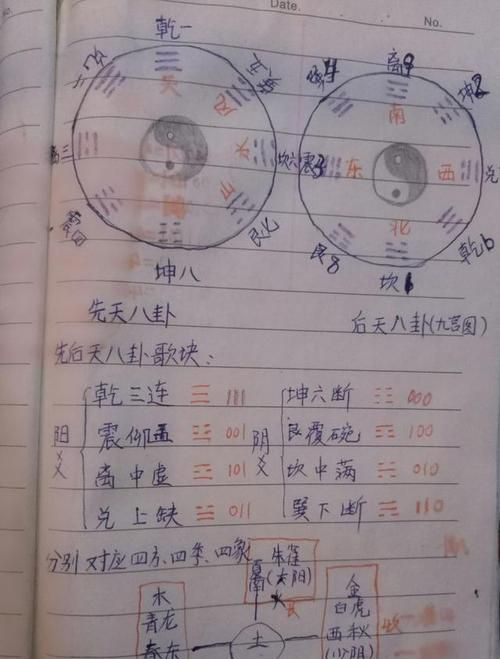 Date.
No.
乾一
天
兑二
巽五
风
离三
水
坎六
山
艮七
坤八
离9
巽4
坤2
南
震3
东
西
兑
北
艮8
乾6
坎1
先天八卦
后天八卦(九宫图)
先后天八卦歌块:
阳爻
乾三连 ☰ 111
震仰盂 ☳ 001
离中虚 ☲ 101
兑上缺 ☱ 011
阴爻
坤六断 ☷ 000
艮覆碗 ☶ 100
坎中满 ☵ 010
巽下断 ☴ 110
分别对应四方、四季、四象
朱雀
夏南(太阳)
火
木
青龙
春东
土
金
白虎
西秋
(少阴)